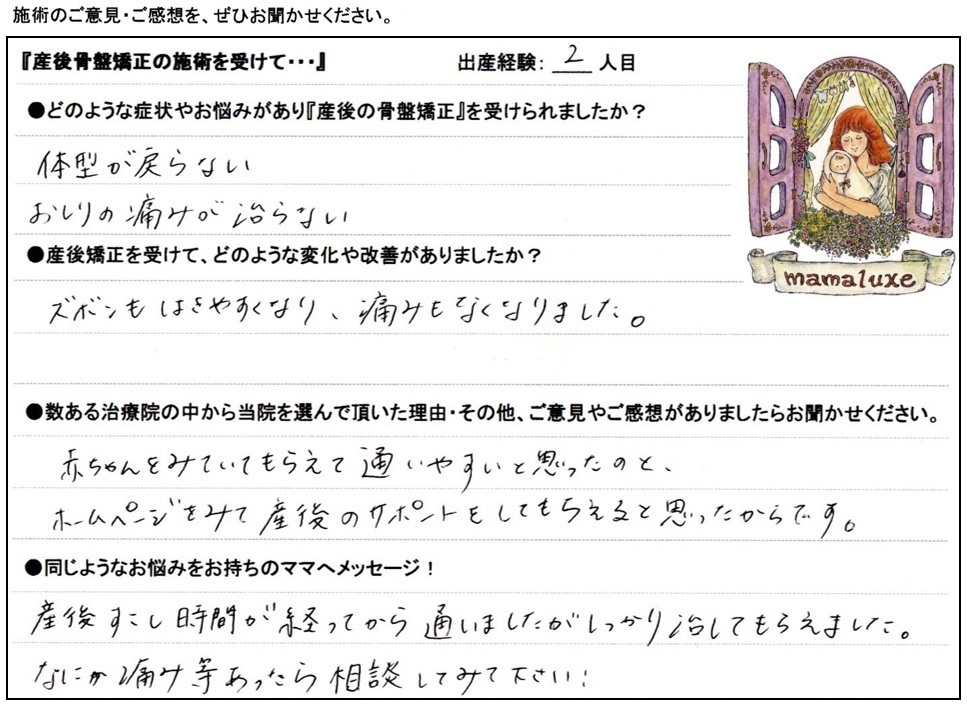 施術のご意見・ご感想を、ぜひお聞かせください。
『産後骨盤矯正の施術を受けて・・・』 出産経験： 2 人目
●どのような症状やお悩みがあり『産後の骨盤矯正』を受けられましたか？
体型が戻らない
おしりの痛みが治らない
●産後矯正を受けて、どのような変化や改善がありましたか？
ズボンもはきやすくなり、痛みもなくなりました。
mamaluxe
●数ある治療院の中から当院を選んで頂いた理由・その他、ご意見やご感想がありましたらお聞かせください。
赤ちゃんをみていてもらえて通いやすいと思ったのと、
ホームページをみて産後のサポートをしてもらえると思ったからです。
●同じようなお悩みをお持ちのママへメッセージ！
産後すこし時間が経ってから通いましたがしっかり治してもらえました。
なにか痛み等あったら相談してみて下さい！